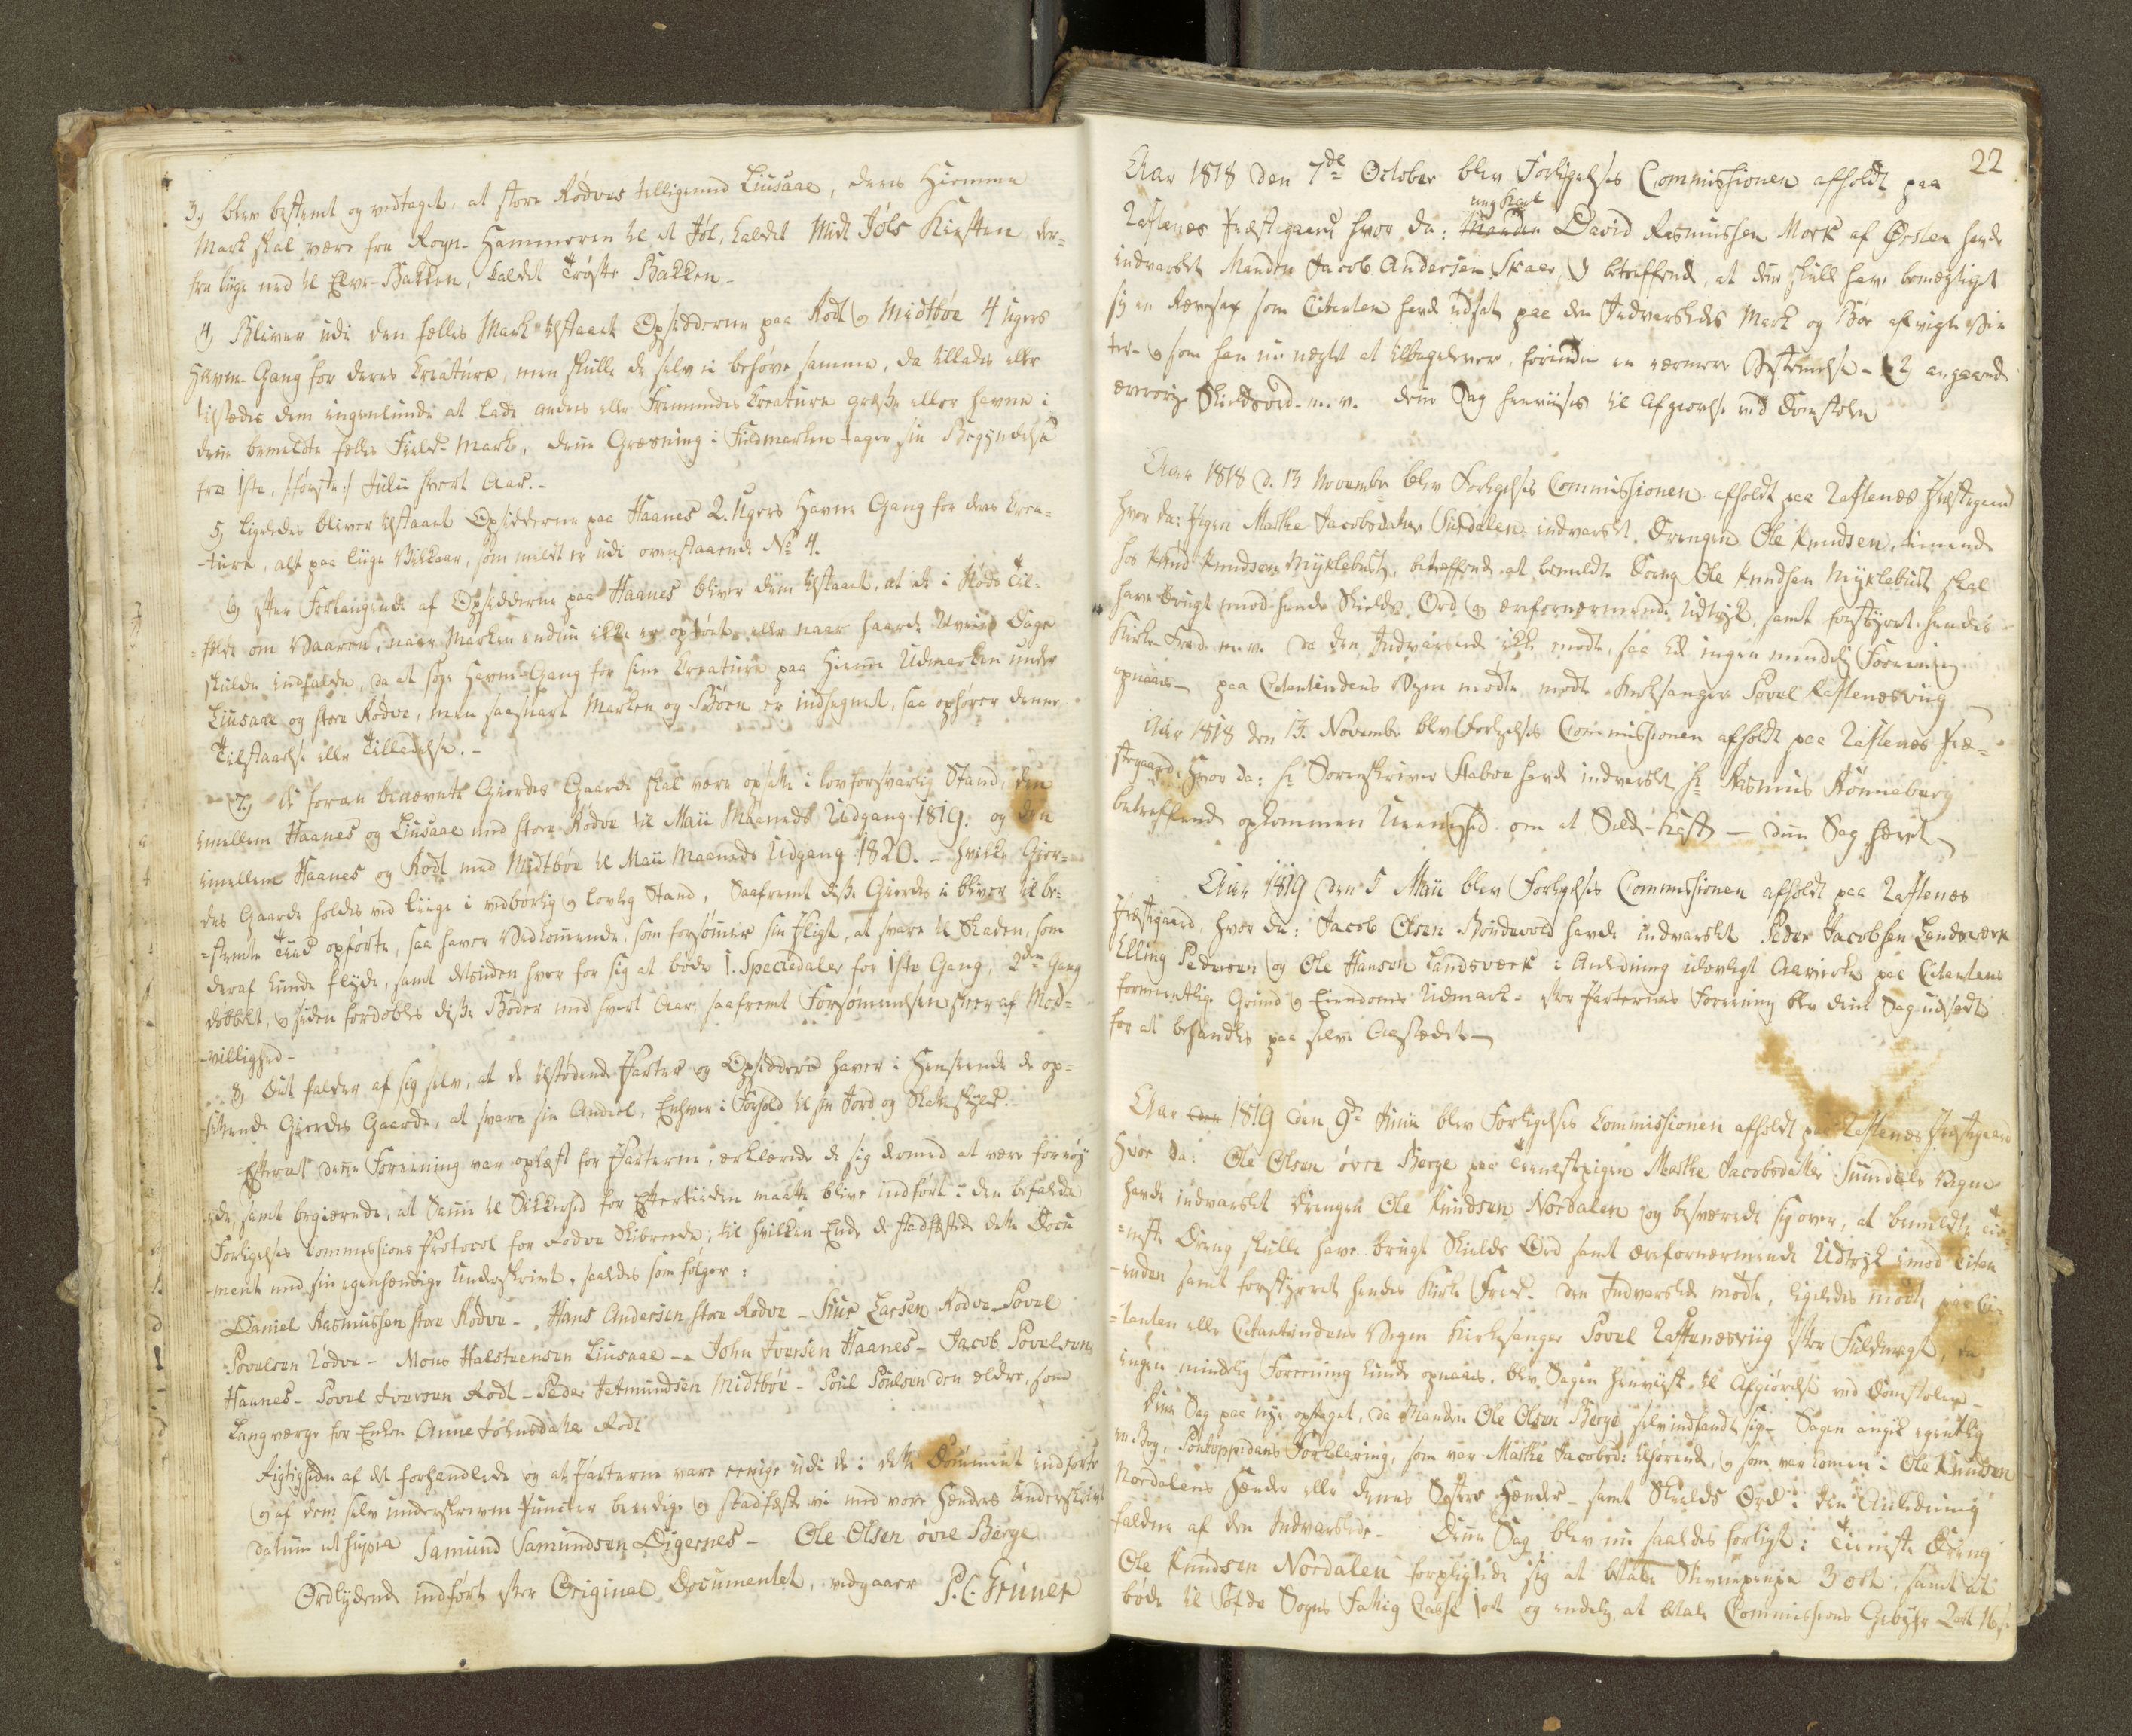 3, blev bestemt og vedtaget, at store Rødves tilligemed Liusaae, deres Hiemme
Mark skal være fra Rogn-Hammeren til et Jøl, kaldet Midt Jøls Kiesten der=
fra liige ned til Elve-Bakken, kaldet Trøste Bakken –
4, Bliver udi den fælles Mark tilstaaet Opsidderne paa Rødt og Midtbøe 4 Ugers
Havne-Gang for deres Creature, men skulle de selv ei behøve samme, da tillades eller
tilstedes dem ingenlunde at lade andres eller Fremmedes Creature græsse eller havne i
denne bemeldte fælles Field-Mark, denne Græsning i Fieldmarken tager sin Begyndelse
fra 1ste, /:første:/ Julii hvert Aar. –
5, ligeledes bliver tilstaaet Opsidderne paa Haanes 2. Ugers Havne Gang for deres Crea=
-ture, alt paa liige Vilkaar, som meldt er udi ovenstaaende No 4.
6, efter Forlangende af Opsidderne paa Haanes bliver dem tilstaaet, at de i Nøds Til-
=fælde om Vaaren, naar Marken endnu ikke er optøet, eller naar haarde Uveirs Dage
skulde indfalde, da at søge Havne-Gang for sine Creature paa Hiemme Udmarken under
Liusaae og store Rødve, men saasnart Marken og Bøen er indhegnet, saa ophører denne
Tilstaaelse eller Tilladelse. –
7, de foran benævnte Gierdes Gaarde skal være opsatte i lovforsvarlig Stand, den
imellem Haanes og Liusaae med store Rødve til Maii Maaneds Udgang 1819. og den
imellem Haanes og Rødt med Midtbøe til Maii Maaneds Udgang 1820. – hvilke Gier=
des Gaarde holdes ved liige i vedbørlig og lovlig Stand, Saafremt disse Gierder ei bliver til be=
=stemte Tiid opførte, saa haver Vedkommende, som forsømmer sin Pligt, at svare til Skaden, som
deraf kunde flyde, samt desuden hver for sig at bøde 1. Speciedaler for 1ste Gang, 2den Gang
dobbelt, og siden fordobles disse Bøder med hvert Aar, saafremt Forsømmelsen skeer af Mod=
-villighed –
8, Det falder af sig selv, at de tilstødende Parter og Opsiddere haver i Henseende de op=
-sættende Gierdes Gaarde, at svare sin Andeel, Enhver i Forhold til sin Jord og Matr skyld. –
Efterat denne Forening var oplæst for Parterne, erklærede de sig dermed at være fornøy
ede, samt begiærede, at Samme til Sikkerhed for Eftertiiden maatte blive indført i den befalede
Forligelses Commissions Protocol for Rødve Skibrede; til hvilken Ende de stadfæstede dette Docu
-ment med sin egenhændige Underskrivt, saaledes som følger:
Daniel Rasmussen store Rødve – Hans Andersen store Rødve – Siur Larsen Rødve – Povel
Povelsen Rødve – Mons Halsteensen Liusaae – John Iversen Haanes – Jacob Povelsen
Haanes – Povel Iversen Rødt – Peder Jetmundsen Midtbøe – Poul Poulsen den eldre, som
Laugværge for Enken Anne Johnsdatter Rødt
Rigtigheden af det forhandlede og at Parterne vare eenige udi de i dette Document indførte
og af dem selv underskrevne Puncter bevidne og stadfæste vi med vore Hænders Underskrivt
datum ut supra Samund Samundsen Digernes – Ole Olsen øvre Berge
Ordlydende indført efter Original Documentet, vidgaaer P. C. Grüner
22
Aar 1818 den 7de October blev Forligelses Commissionen afholdt paa
ung Karl
Næstenes Præstegaard hvor da: Manden David Rasmussen Mork af Ørsten havde
indvarslet Manden Jacob Andersen Skaar, 1) betreffende, at denne skull have bemægtiget
sig en Rævesax som Citanten havde udsat paa den Indvarsledes Mark og Bøe
og som han nu negtet at tilbagelevere, forinden en nærmere Bestemmelse – 2) angaaende
ærerørige Skieldsord m.v. denne Sag henviises til Afgiørelse ved Domstolen
Aar 1818 d. 13 November blev Forligelses Commissionen afholdt paa Præstegaard
hvor da: Pigen Marthe Jacobsdatter Surdalen indvarslet Drengen Ole Knudsen, tienende
hos Knud Knudsen Myklebust, betreffende at bemeldte Dreng Ole Knudsen Myklebust skal
have brugt imod hende Skields Ord og ærefornærmende Udtryk, samt forstyrret hendes
Kirke-Fred m.v. da den Indvarslede ikke mødte, saa kan ingen mindelig Forening
opnaaes – paa Citantindens Vegne mødte mødte Kirkesanger Povel
Aar 1818 den 13. November blev Forligelses Commissionen afholdt paa Præ=
stegaard, hvor da: Hr Sorenskriver Stabve havde indvarslet Hr Rasmus Rønneberg
betreffende opkommen Ueenighed om et Silde-Kast – denne Sag hævet –
Aar 1819 den 5 Maii blev Forligelses Commissionen afholdt paa
Præstegaard, hvor da: Jacob Olsen Bøndevold havde indvarslet Peder Jacobsen Landsværk
Elling Pedersen og Ole Hansen Landsværk i Anledning ulovligt Aavirke paa Citantens
formeentlige Grund og Eiendoms Udmark – efter Parternes Forening blev denne Sag udsadt
for at behandles paa selve Aastedet –
Aar den 1819 den 9de Junii blev Forligelses Commissionen afholdt paa Præstegaard
hvor da: Ole Olsen øvre Berge paa Tienestepigen Marthe Jacobsdatter Surndals Vegne
havde indvarslet Drengen Ole Knudsen Nordalen og besværede sig over, at bemeldte Tie=
=neste Dreng skulle have brugt Skields Ord samt ærefornærmende Udtryk imod Citan
-inden samt forstyrret hendes Kirke Fred. den Indvarslede mødte, ligeledes mødte paa Ci=
=tanten eller Citantindens Vegne Kirkesanger Povel efter Fuldmagt, da
ingen mindelig Forening kunde opnaaes, blev Sagen henviist til Afgiørelse ved Domstolen –
denne Sag paa nye optaget, da Manden Ole Olsen Berge selv indfandt sig – Sagen angik egentlig
en Bog, Pontoppidans Forklaring, som var Marthe Jacobsd: tilhørende, og som var kommen i Ole Knudsen
Nordalens Hænder eller dennes Søsters Hænder – samt Skields Ord i den Anledning
faldne af den Indvarslede – Denne Sag blev nu saaledes forligt: Tieneste Dreng
Ole Knudsen Nordalen forpligtede sig at betale Stevnepenge 3 ort, samt at
bøde til Sogns Fattig Casse 1 ort og endelig at betale Commissions Gebyhr 2 ort 16 s.